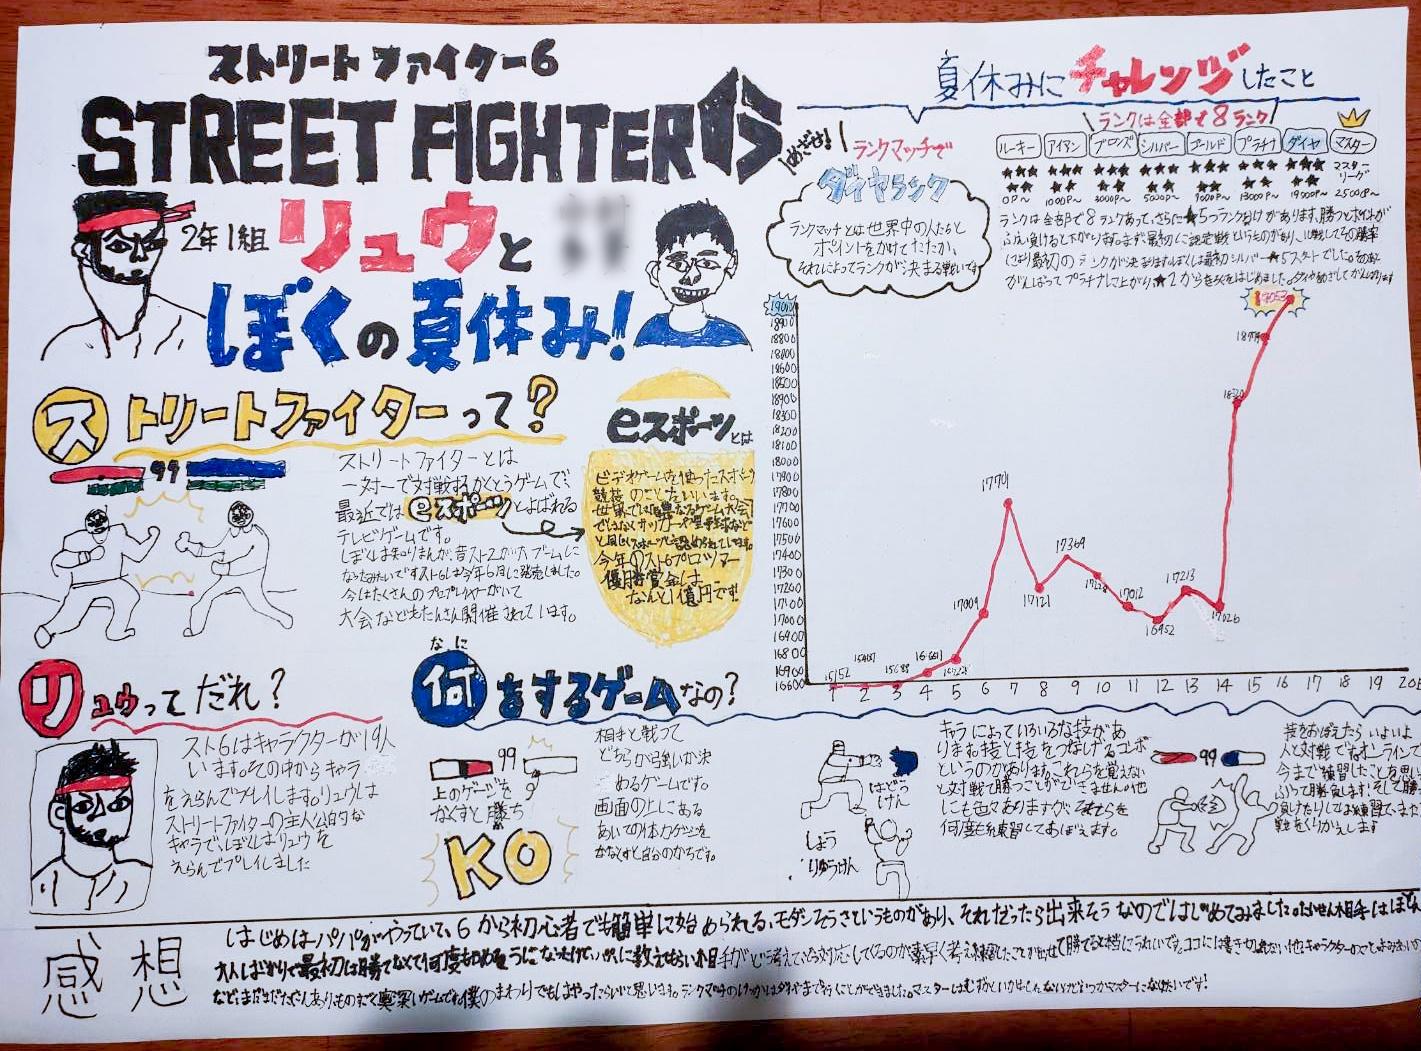 ストリートファイター6
STREET FIGHTER 6
2年1組 リュウと
ぼくの夏休み!
夏休みにチャレンジしたこと
めざせ!
ランクマッチで
ダイヤランク
ランクマッチとは世界中の人たちと
ポイントをかけてたたかい、
それによってランクが決まる戦いです
ランクは全部で8ランク
ルーキー アイアン ブロンズ シルバー ゴールド プラチナ ダイヤ マスター
マスターリーグ
0P~ 1000P~ 3000P~ 5000P~ 9000P~ 13000P~ 19000P~ 25000P~
ランクは全部で8ランクあって、さらに★5つランク分けがあります。勝つとポイントが
ふえ、負けると下がります。まず、最初に認定戦というものがあり、10戦してその勝率
により最初のランクが決まります。ぼくは最初シルバー★5スタートでした。
がんばってプラチナまで上がり、★2から
ストリートファイターって?
99
ストリートファイターとは
一対一で対戦するかくとうゲームで、
最近ではeスポーツとよばれる
テレビゲームです。
ぼくは知りませんが、昔スト2が大ブームに
なったみたいです。スト6は今年6月に発売しました。
今はたくさんのプロプレイヤーがいて
大会などもたくさん開催されています。
eスポーツとは
ビデオゲームを使ったスポーツ
競技のことをいいます。
世界では
ではなくサッカーや野球など
と同じスポーツと認められています。
今年のスト6プロツアー
優勝賞金は
なんと1億円です!
19000
18900
18800
18000
17900
17800
17700
17600
17500
17400
17300
17200
17100
17000
16900
16800
16600
15152
16661
17009
17701
17121
17369
17012
16952
17213
17026
19053
1 2 3 4 5 6 7 8 9 10 11 12 13 14 15 16 17 18 19 20
リュウってだれ?
スト6はキャラクターが19人
います。その中からキャラ
をえらんでプレイします。リュウは
ストリートファイターの主人公的な
キャラで、ぼくはリュウを
えらんでプレイしました
なに
何をするゲームなの?
99
上のゲージを
なくすと勝ち
KO
相手と戦って
どちらが強いか決
めるゲームです。
画面の上にある
あいての体力ゲージを
なくすと自分のかちです。
はどうけん
しょうりゅうけん
キャラによっていろいろな技があ
ります。技と技をつなげるコンボ
というのがあります。これらを覚えない
と対戦で勝つことができません。他
にも色々ありますがそれらを
何度も練習しておぼえます。
99
技をおぼえたらいよいよ
人と対戦です。オンラインで
今まで練習したことを思い
負けたりしては練習で、また
戦をくりかえします
感想
はじめはパパがやっていて、6から初心者でも簡単に始められる、モダンそうさというものがあり、それだったら出来そうなのではじめてみました。たいせん相手はほとん
大人ばかりで最初は勝てなくて何度もやめそうになったけど、パパに教えてもらい相手がどう考えてどう対応してくるのか素早く考え練習したことが出せて勝てると本当にうれしいです。ココには書き切れない他キャラクターのことや
奥深いゲームです。僕のまわりでもはやったらいいと思います。ランクマッチのけっかはダイヤまで行くことができました。マスターはむずかしいかもしれないけどいつかマスターになりたいです!